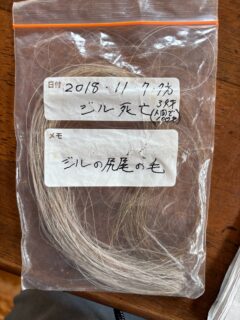 日付 2018・11・7
ジル死亡
メモ
ジルの尻尾の毛